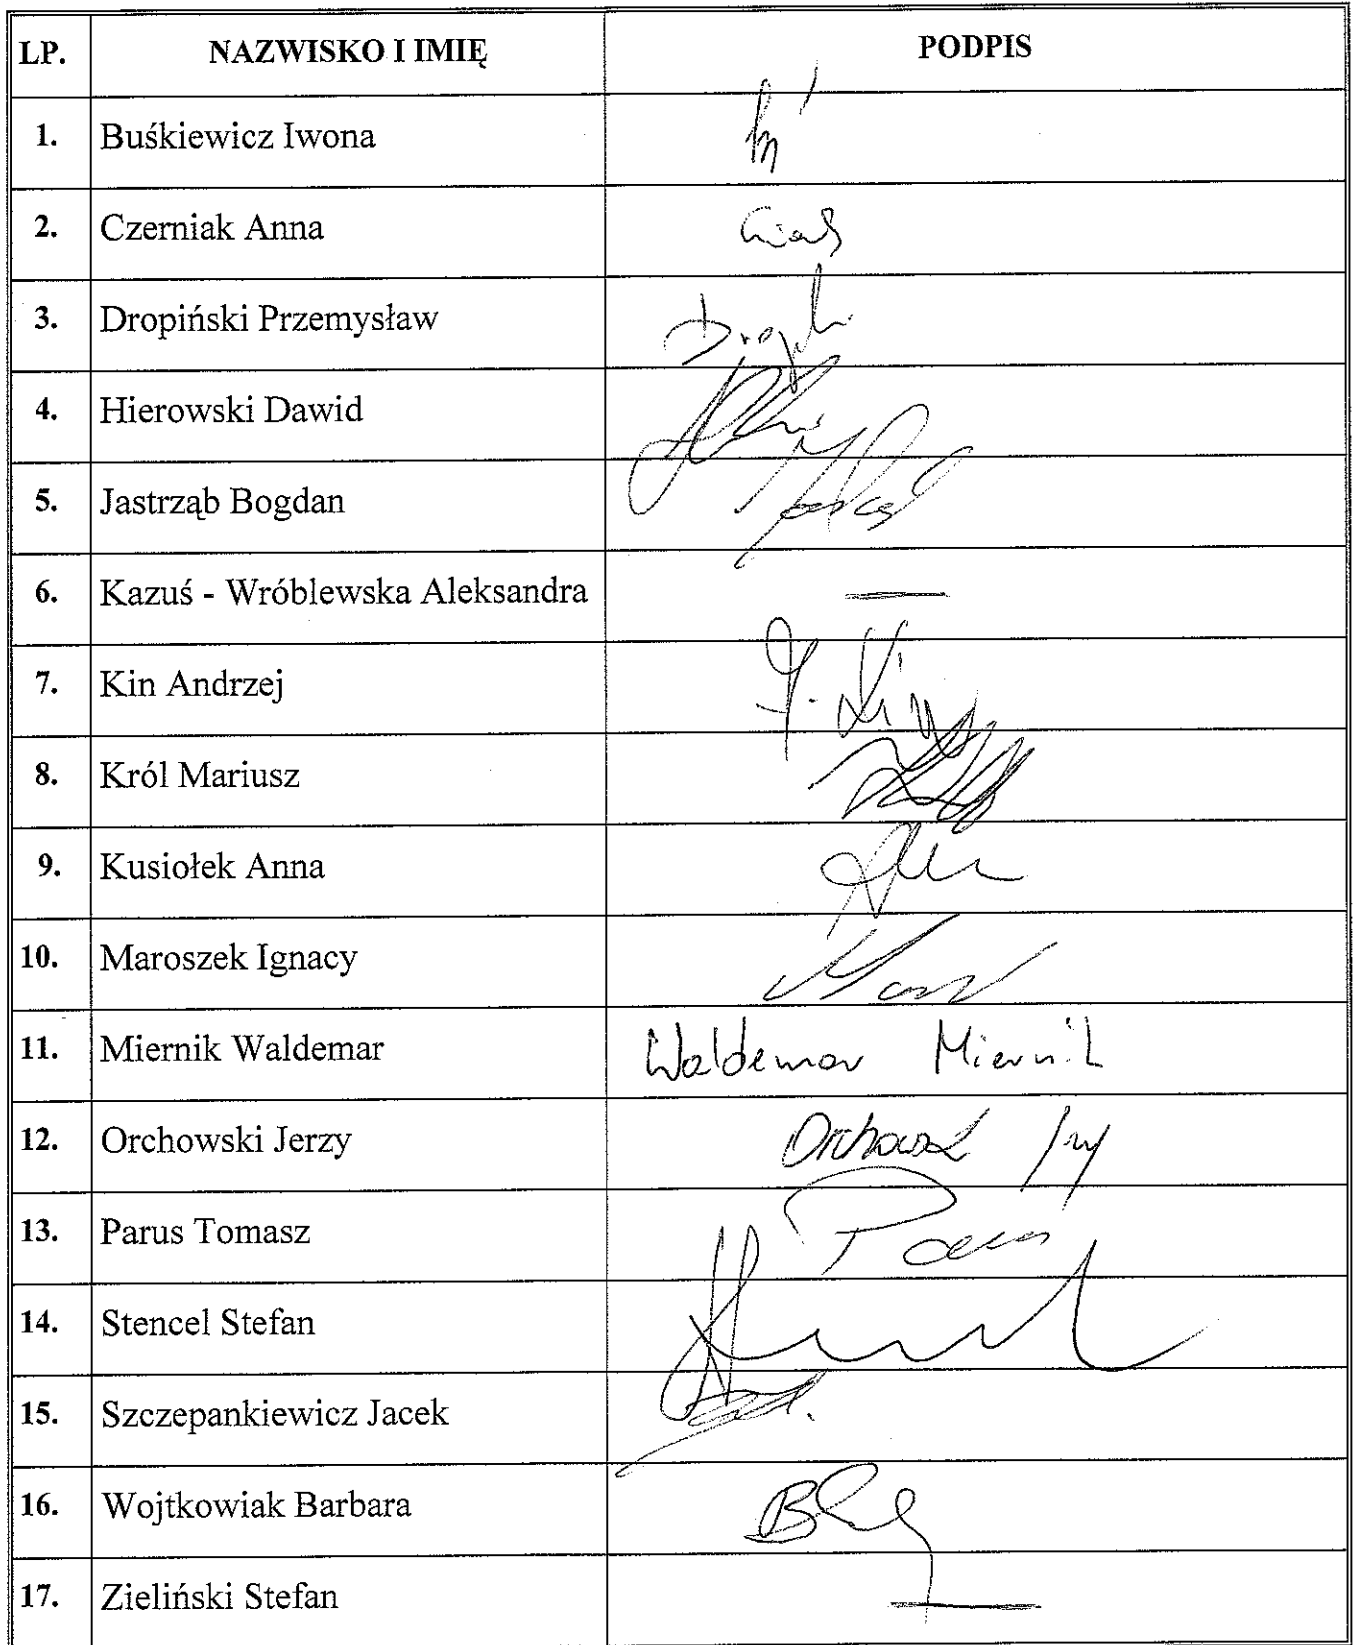 LP. NAZWISKO I IMIĘ PODPIS
1. Buśkiewicz Iwona
2. Czerniak Anna
3. Dropiński Przemysław
4. Hierowski Dawid
5. Jastrząb Bogdan
6. Kazuś - Wróblewska Aleksandra
7. Kin Andrzej
8. Król Mariusz
9. Kusiołek Anna
10. Maroszek Ignacy
11. Miernik Waldemar Waldemar Miernik
12. Orchowski Jerzy
13. Parus Tomasz
14. Stencel Stefan
15. Szczepankiewicz Jacek
16. Wojtkowiak Barbara
17. Zieliński Stefan